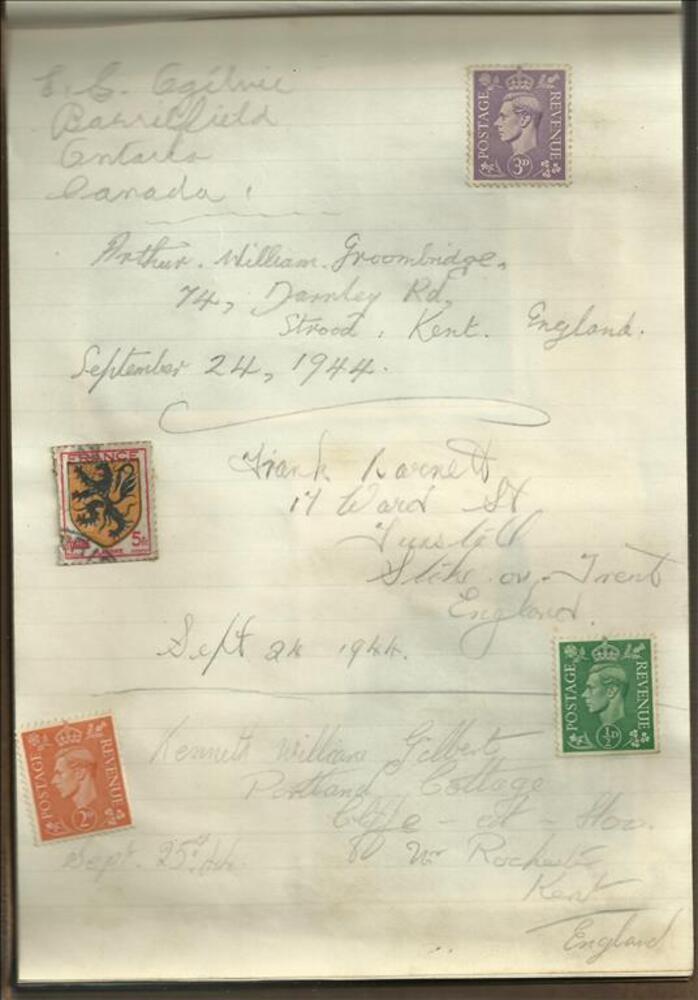 Ogilvie
Barriefield
Ontario
Canada
POSTAGE REVENUE
3D
Arthur. William. Groombridge.
74, Darnley Rd,
Strood, Kent. England.
September 24, 1944.
FRANCE
5F
Frank Barnett
17 Ward St
Tunstall
Stoke on Trent
England.
Sept 24 1944.
POSTAGE REVENUE
½D
POSTAGE REVENUE
2D
Kenneth William Gilbert
Portland Cottage
Cliffe - at - Hoo.
Nr Rochester
Sept. 25th 44.
Kent
England